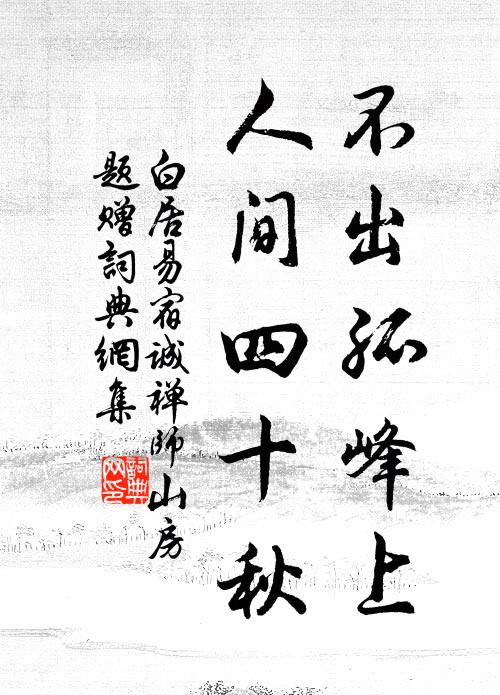 不出孤峰上
人间四十秋
白居易宿诚禅师山房
题赠词典网集
词典
网印